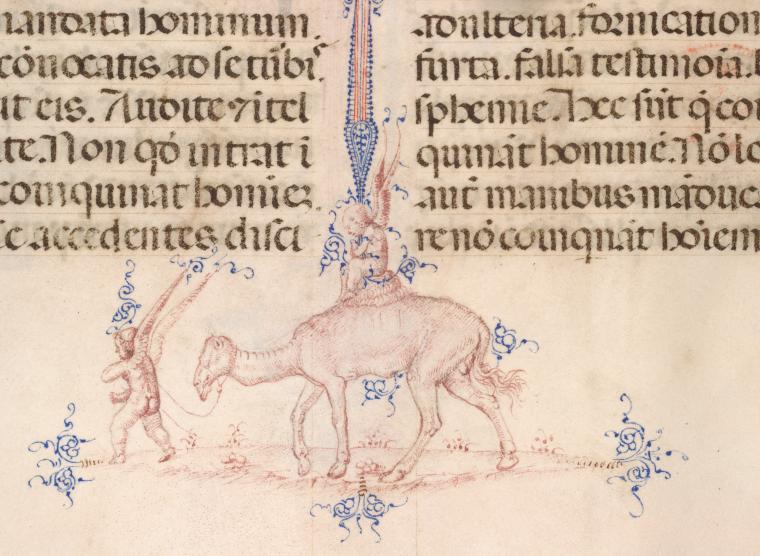 mandata hominum.
cōuocatis ad se tur̄bis
it eis. Audite ⁊ītel
te. Non qd̄ intrat ī
coinquinat homīez
accedentes disci
adulteria. fornication
furta. falsa testimoīa.
sphemie. Hec sūt q̄ coī
quināt hominē. Nō lo
aut̄ manibus māduca
re nō coinqnāt hoīem